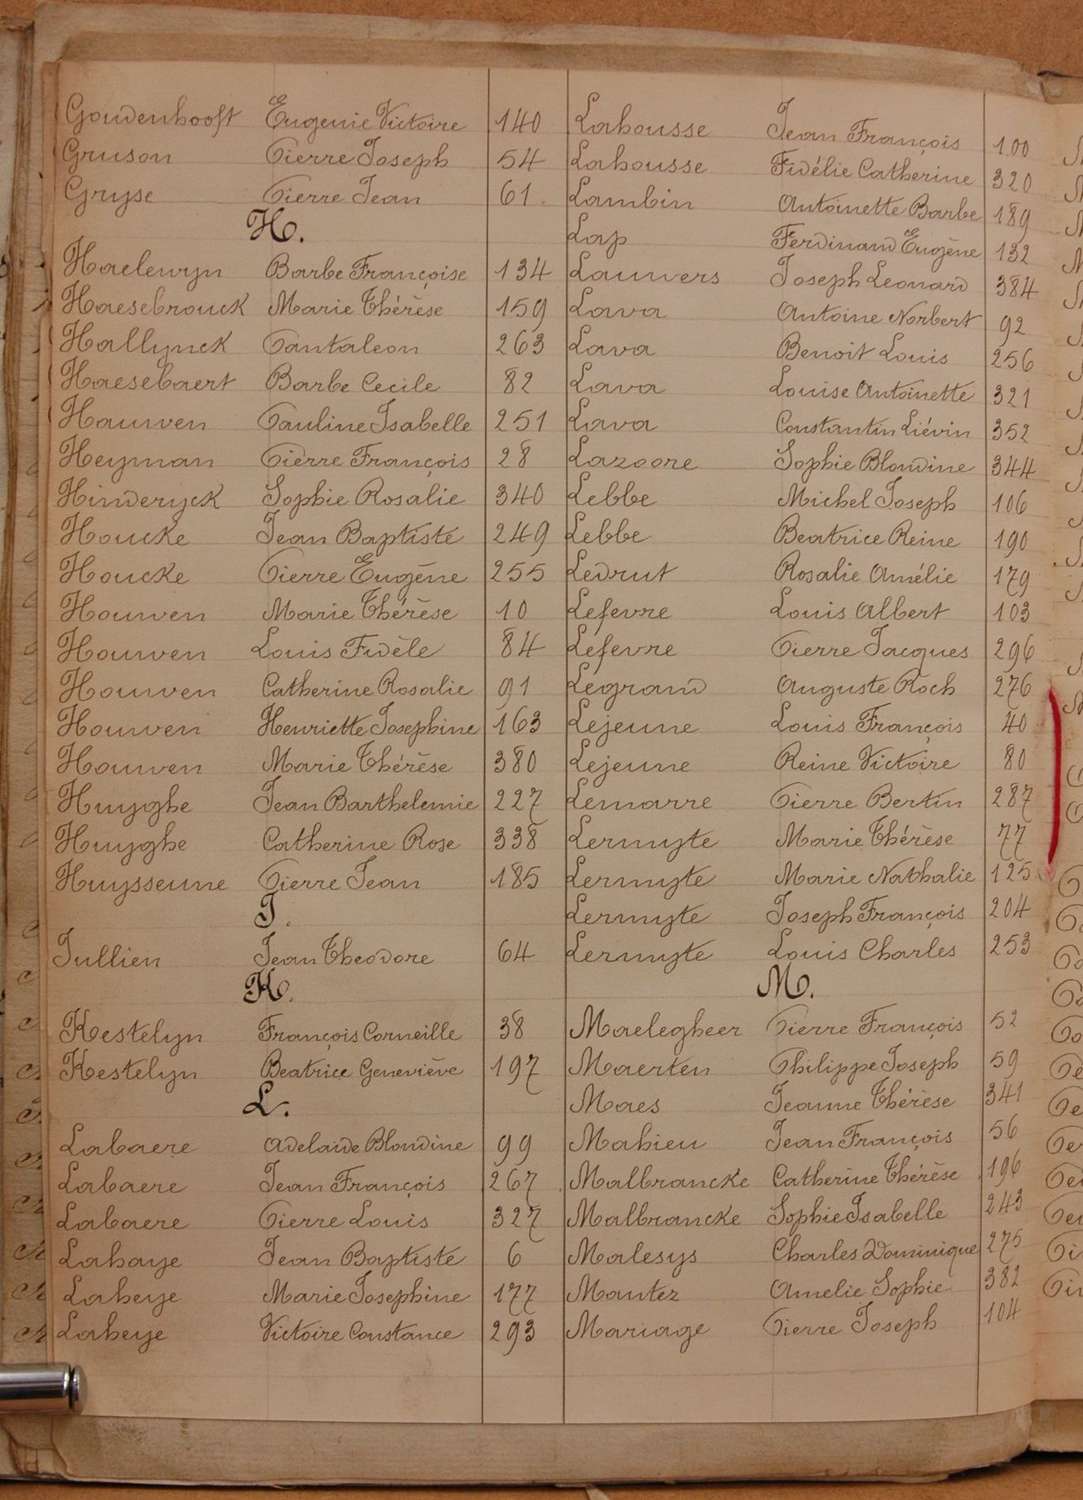 Goudenhooft Eugenie Victoire 140
Gruson Pierre Joseph 54
Gryse Pierre Jean 61
H.
Haelewyn Barbe Françoise 134
Haesebrouck Marie Thérèse 159
Hallynck Pantaleon 263
Haesebaert Barbe Cecile 82
Hauwen Pauline Isabelle 251
Heyman Pierre François 28
Hinderyck Sophie Rosalie 340
Houcke Jean Baptiste 249
Houcke Pierre Eugène 255
Houwen Marie Thérèse 10
Houwen Louis Fidèle 84
Houwen Catherine Rosalie 91
Houwen Henriette Josephine 163
Houwen Marie Thérèse 380
Huyghe Jean Barthelemie 227
Huyghe Catherine Rose 338
Huysseune Pierre Jean 185
J.
Jullien Jean Theodore 64
K.
Kestelyn François Corneille 38
Kestelyn Beatrice Geneviève 197
L.
Labaere Adelaide Blondine 99
Labaere Jean François 267
Labaere Pierre Louis 327
Lahaye Jean Baptiste 6
Laheye Marie Josephine 177
Laheye Victoire Constance 293
Lahousse Jean François 100
Lahousse Fidélie Catherine 320
Lambin Antoinette Barbe 189
Lap Ferdinand Eugène 132
Lauwers Joseph Leonard 384
Lava Antoine Norbert 92
Lava Benoit Louis 256
Lava Louise Antoinette 321
Lava Constantin Liévin 352
Lazoore Sophie Blondine 344
Lebbe Michel Joseph 106
Lebbe Beatrice Reine 190
Ledrut Rosalie Amélie 179
Lefevre Louis Albert 103
Lefevre Pierre Jacques 296
Legrand Auguste Roch 276
Lejeune Louis François 40
Lejeune Reine Victoire 80
Lemarre Pierre Bertin 287
Lermyte Marie Thérèse 77
Lermyte Marie Nathalie 125
Lermyte Joseph François 204
Lermyte Louis Charles 253
M.
Maelegheer Pierre François 52
Maerten Philippe Joseph 59
Maes Jeanne Thérèse 341
Mahieu Jean François 56
Malbrancke Catherine Thérèse 196
Malbrancke Sophie Isabelle 243
Malesys Charles Dominique 275
Mantez Amelie Sophie 382
Mariage Pierre Joseph 104